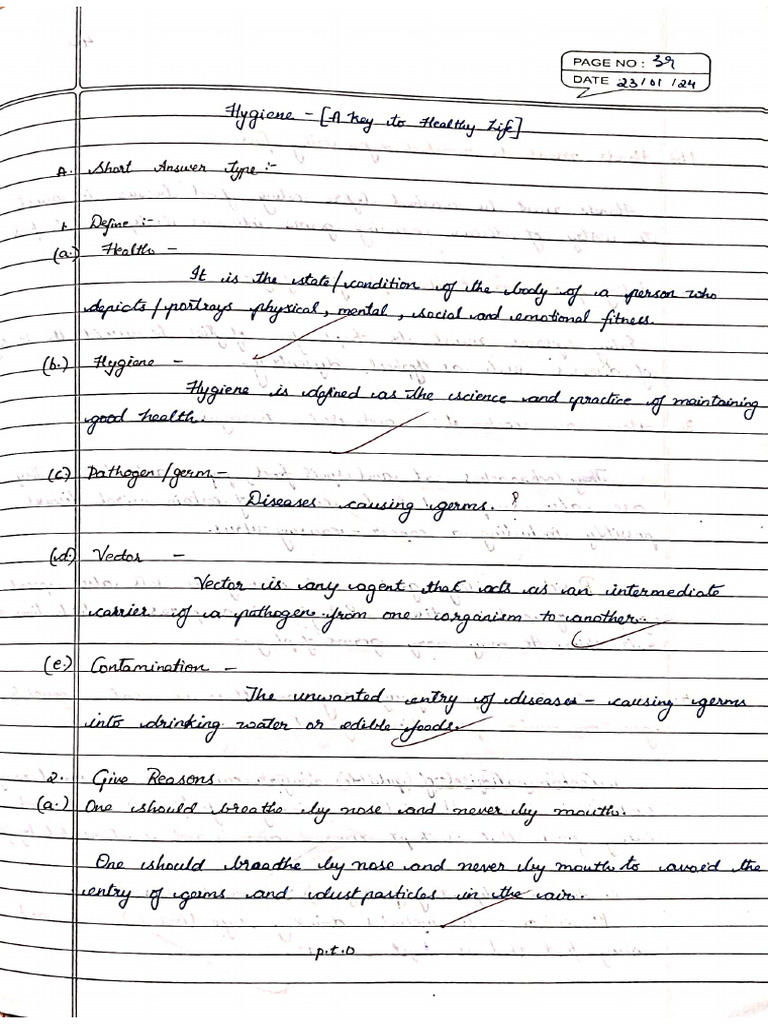 PAGE NO: 39
DATE 23/01/24
Hygiene - [A Key to Healthy Life]
A. Short Answer Type :-
1. Define :-
(a.) Health -
It is the state/condition of the body of a person who
depicts/portrays physical, mental, social and emotional fitness.
(b.) Hygiene -
Hygiene is defined as the science and practice of maintaining
good health.
(c.) Pathogen/germ -
Diseases causing germs.
(d.) Vector -
Vector is any agent that acts as an intermediate
carrier of a pathogen from one organism to another.
(e.) Contamination -
The unwanted entry of diseases - causing germs
into drinking water or edible foods.
2. Give Reasons
(a.) One should breathe by nose and never by mouth.
One should breathe by nose and never by mouth to avoid the
entry of germs and dust particles in the air.
p.t.o